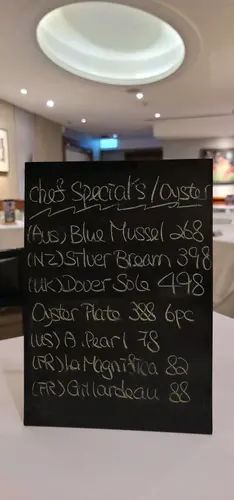 Chef Special's / Oyster
(Aus) Blue Mussel 268
(NZ) Silver Bream 398
(UK) Dover Sole 498
Oyster Plate 388 6pc
(US) A. Pearl 78
(FR) La Magnifica 82
(FR) Gillardeau 88